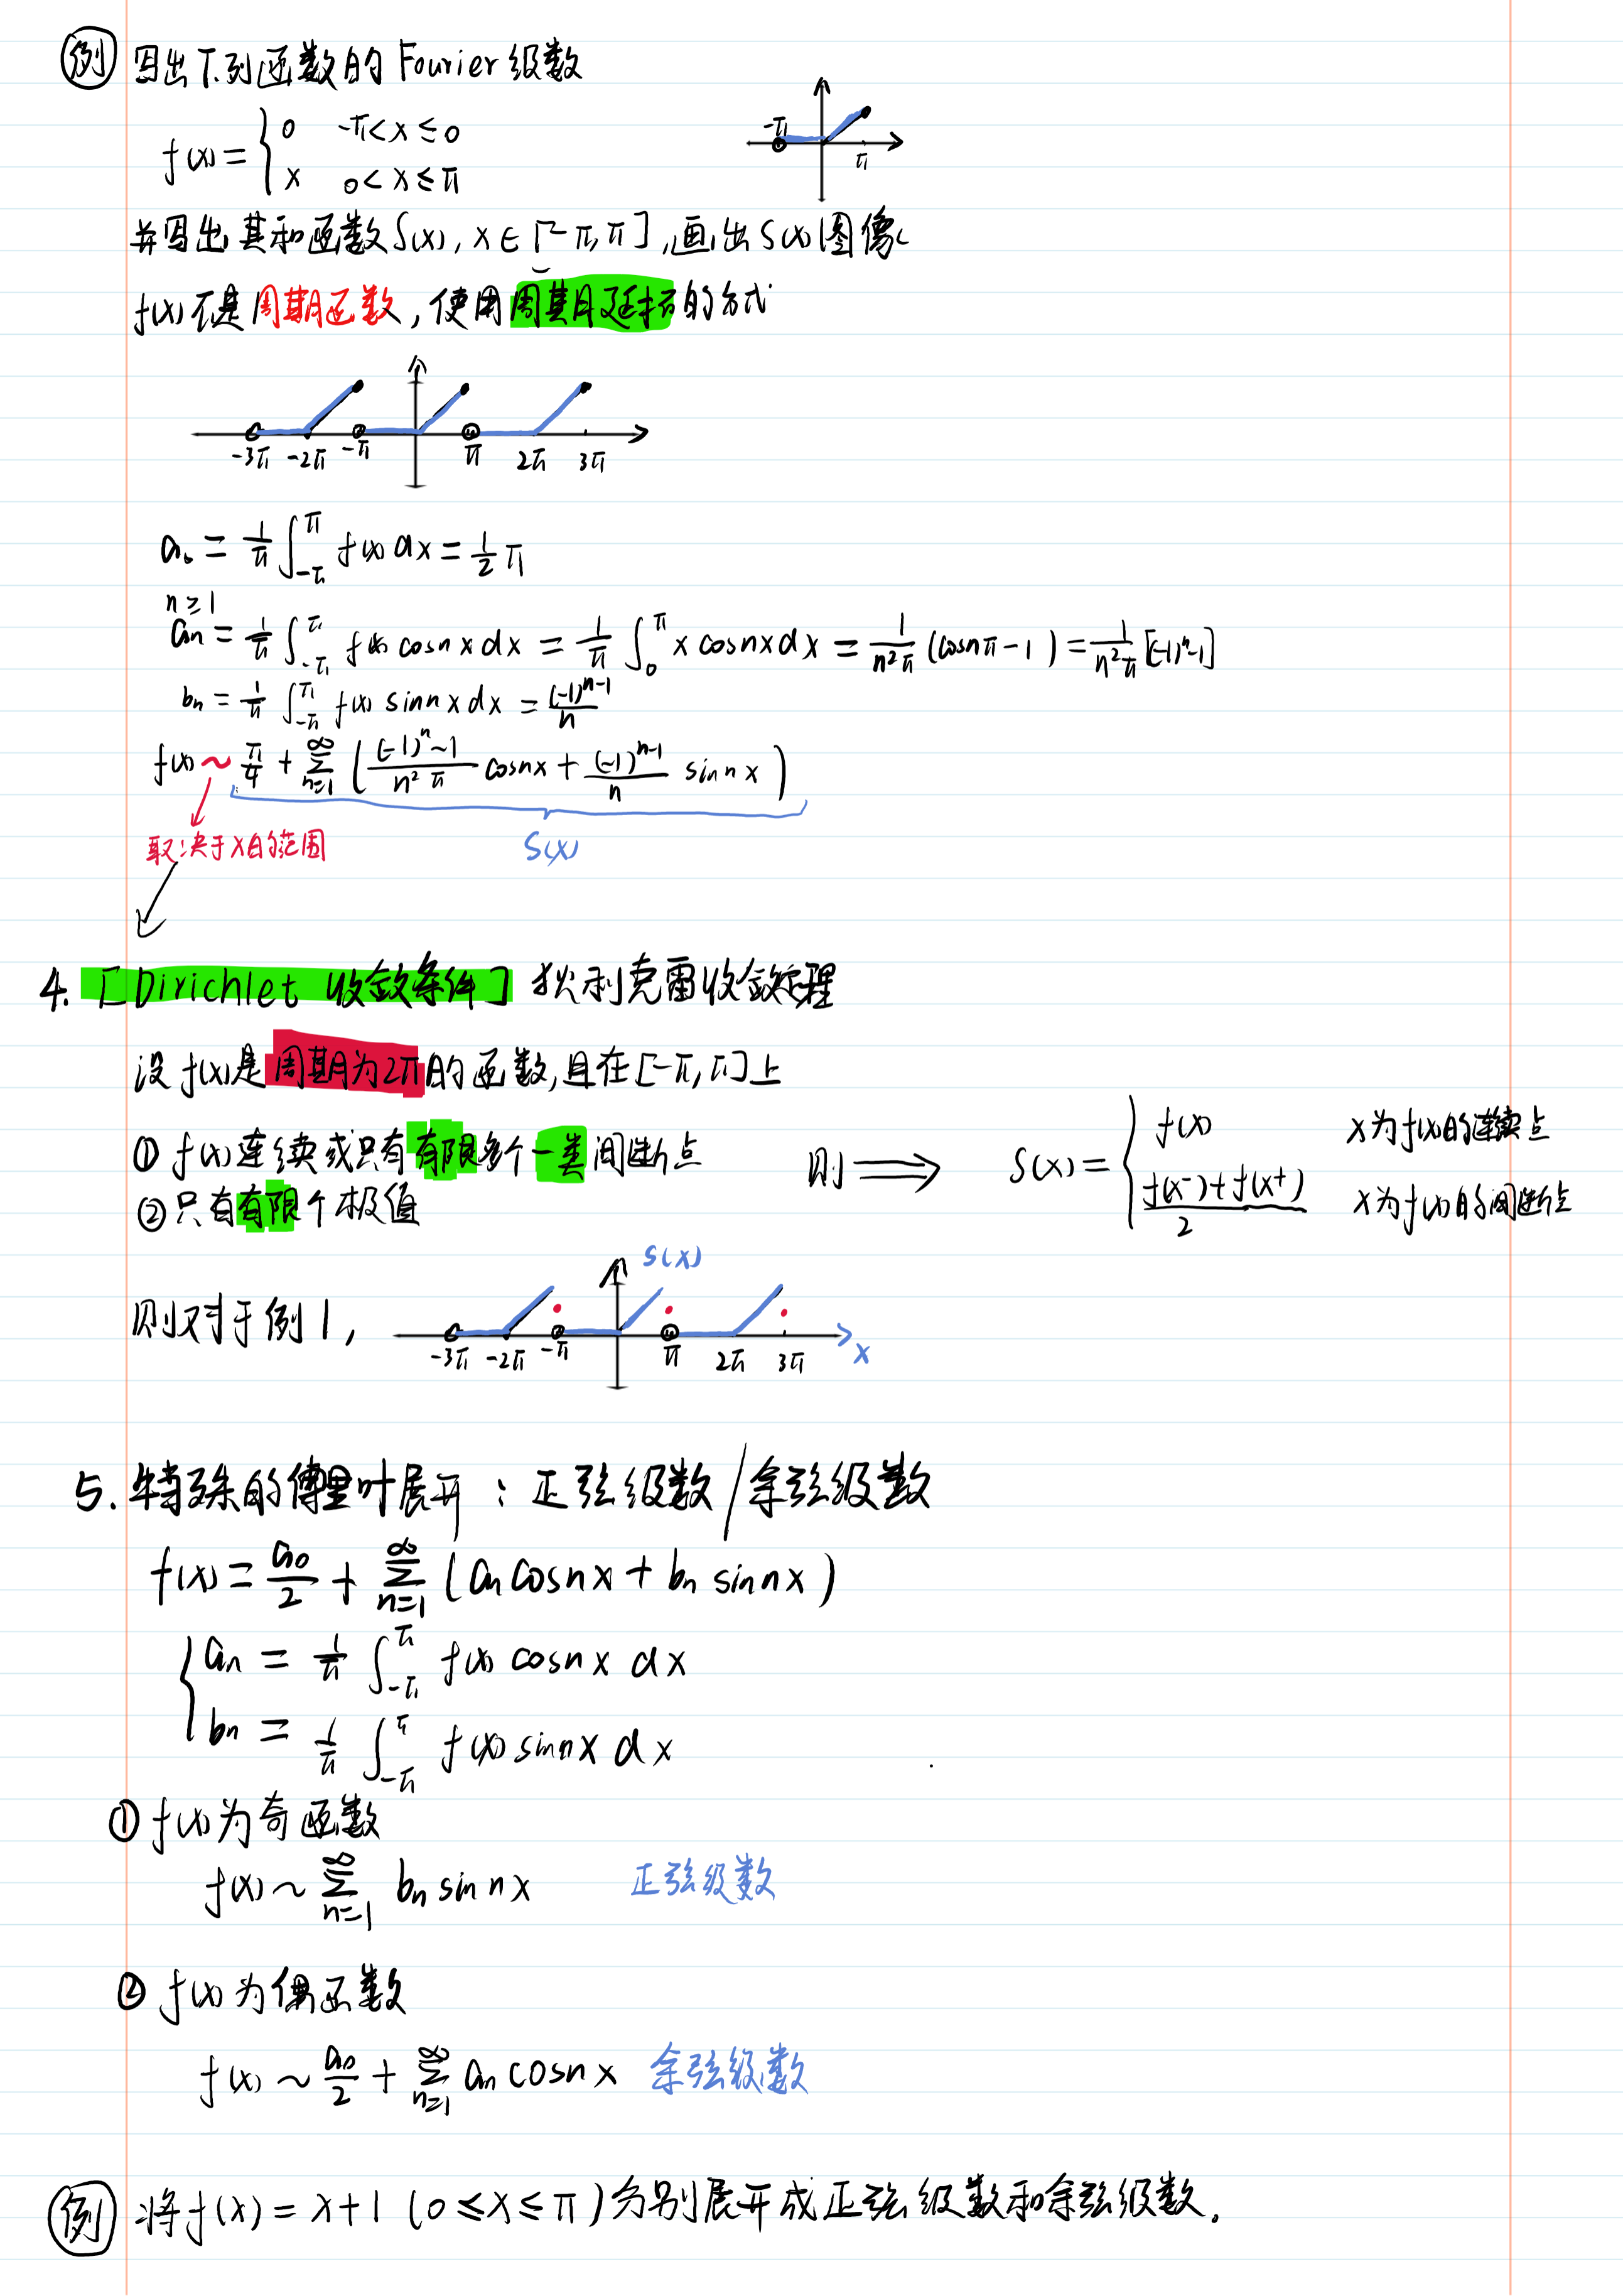 例 写出下列函数的 Fourier 级数
f(x) = { 0 -π < x ≤ 0
x 0 < x ≤ π
-π π
并写出其和函数 S(x), x ∈ [-π, π], 画出 S(x) 图像
f(x) 不是周期函数, 使用周期延拓的方式
-3π -2π -π π 2π 3π
a₀ = 1/π ∫_{-π}^{π} f(x) dx = 1/2 π
n ≥ 1
aₙ = 1/π ∫_{-π}^{π} f(x) cosnx dx = 1/π ∫_0^π x cosnx dx = 1/(n²π) (cosnπ - 1) = 1/(n²π) [(-1)ⁿ-1]
bₙ = 1/π ∫_{-π}^{π} f(x) sinnx dx = (-1)^{n-1}/n
f(x) ~ π/4 + ∑_{n=1}^{∞} ( ((-1)ⁿ-1)/(n²π) cosnx + (-1)^{n-1}/n sinnx )
取决于x的范围 S(x)
4. [Dirichlet 收敛条件] 狄利克雷收敛定理
设 f(x) 是周期为2π的函数, 且在 [-π, π] 上
① f(x) 连续或只有有限多个一类间断点
② 只有有限个极值
则 ⟹ S(x) = { f(x) x为f(x)的连续点
(f(x⁻) + f(x⁺))/2 x为f(x)的间断点
则对于例1,
S(x)
-3π -2π -π π 2π 3π x
5. 特殊的傅里叶展开: 正弦级数/余弦级数
f(x) = a₀/2 + ∑_{n=1}^{∞} (aₙ cosnx + bₙ sinnx)
{ aₙ = 1/π ∫_{-π}^{π} f(x) cosnx dx
bₙ = 1/π ∫_{-π}^{π} f(x) sinnx dx
① f(x) 为奇函数
f(x) ~ ∑_{n=1}^{∞} bₙ sinnx 正弦级数
② f(x) 为偶函数
f(x) ~ a₀/2 + ∑_{n=1}^{∞} aₙ cosnx 余弦级数
例 将 f(x) = x+1 (0 ≤ x ≤ π) 分别展开成正弦级数和余弦级数.